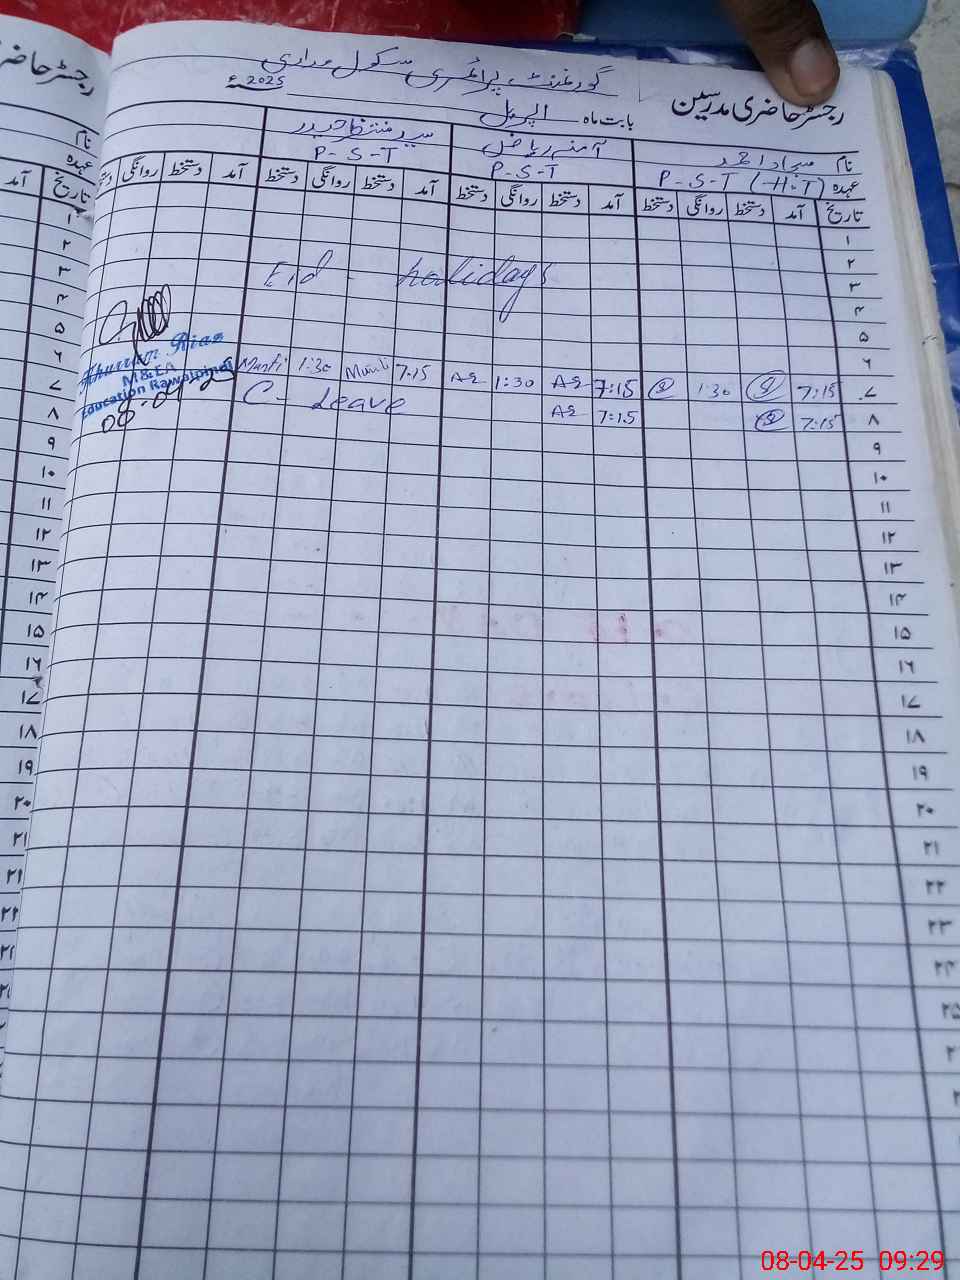 گورنمنٹ پرائمری سکول
رجسٹر حاضری مدرسین
بابت ماہ اپریل 2025ء
نام سجاد احمد آمنہ ریاض سید منتظر حیدر
عہدہ P-S-T (H.T) P-S-T P-S-T
تاریخ آمد دستخط روانگی دستخط آمد دستخط روانگی دستخط آمد دستخط روانگی دستخط آمد دستخط روانگی
۱
۲
Eid - holidays
۳
۴
۵
۶
۷ 7:15 1:30 7:15 1:30 7:15 1:30
۸ 7:15 7:15 C- Leave
۹
۱۰
۱۱
۱۲
۱۳
۱۴
۱۵
۱۶
۱۷
۱۸
۱۹
۲۰
۲۱
۲۲
۲۳
۲۴
۲۵
Khurram Riaz
M&EA
Education Rawalpindi
08-04-25
رجسٹر حاضری
نام
عہدہ
تاریخ آمد
۱
۲
۳
۴
۵
۶
۷
۸
۹
۱۰
۱۱
۱۲
۱۳
۱۴
۱۵
۱۶
۱۷
۱۸
۱۹
۲۰
۲۱
08-04-25 09:29